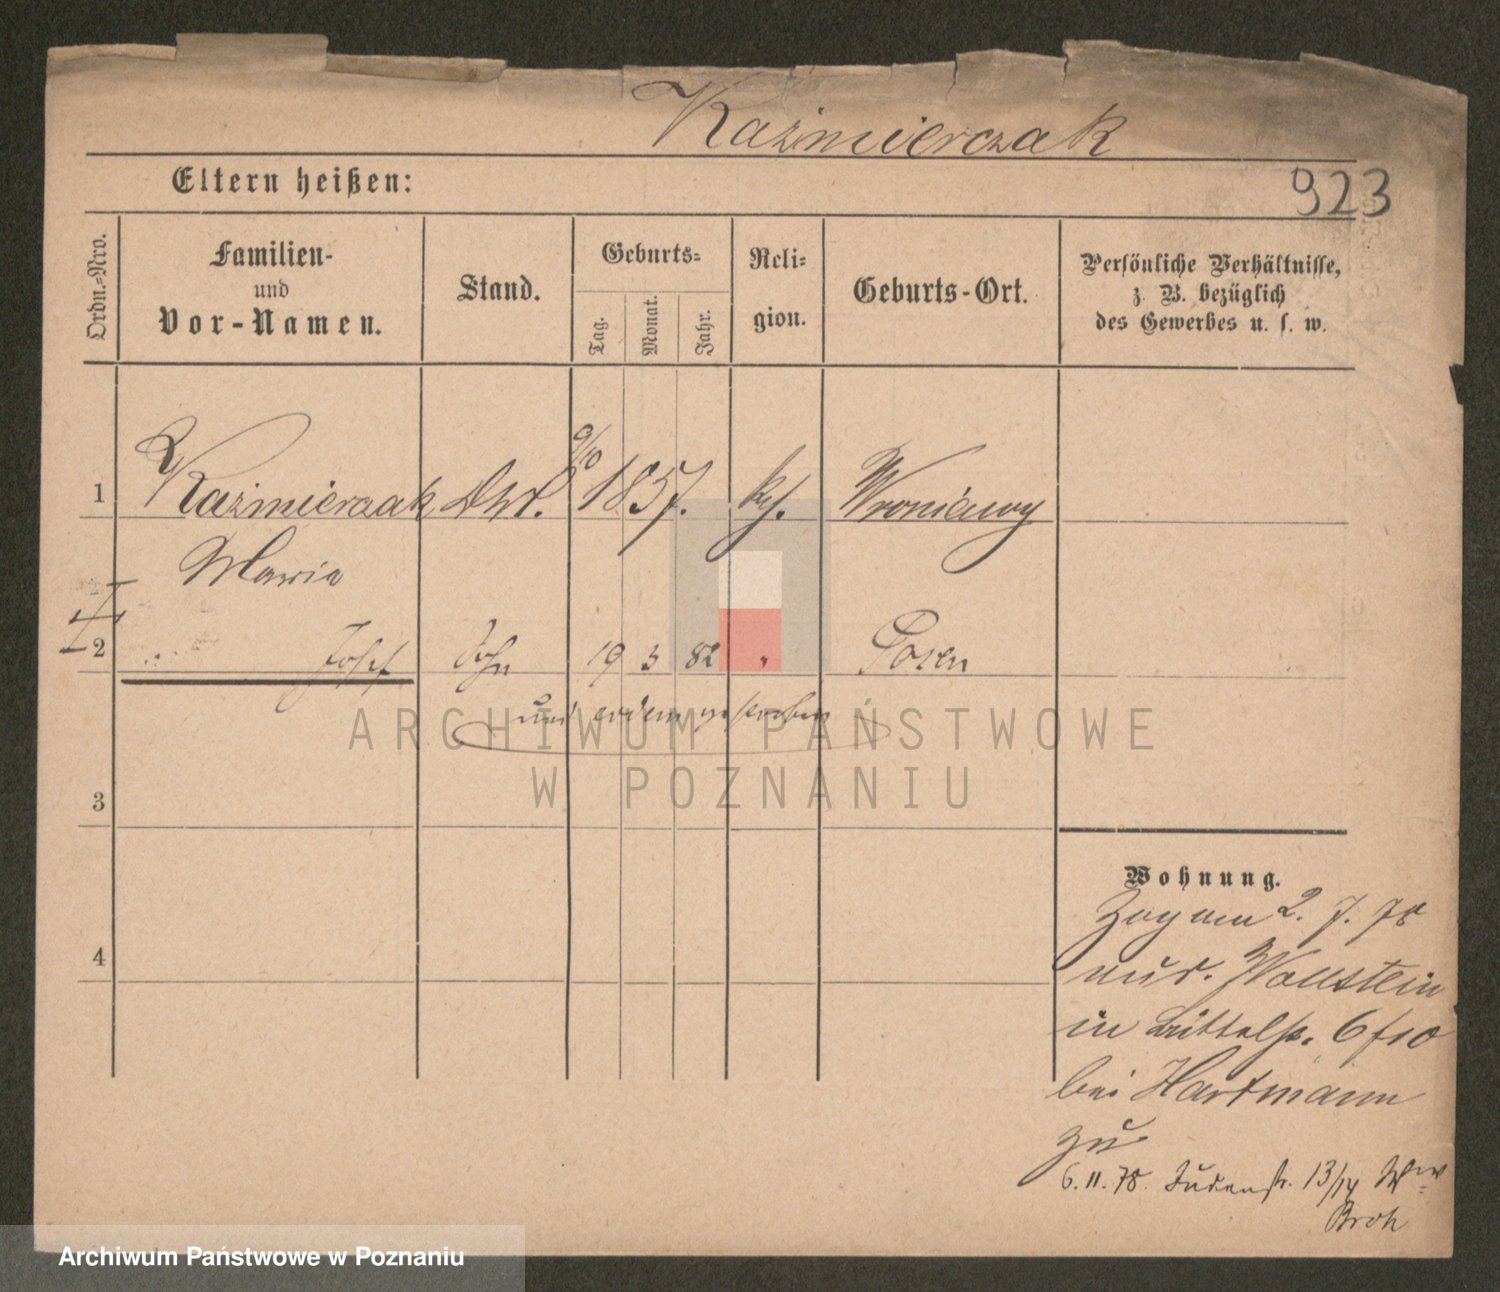 Kaźmierczak
Eltern heißen:
923
Ordn.-Nro.
Familien-
und
Vor-Namen.
Stand.
Geburts-
Tag.
Monat.
Jahr.
Reli-
gion.
Geburts-Ort.
Persönliche Verhältnisse,
z. B. bezüglich
des Gewerbes u. s. w.
1 Kaźmierczak 9/10 1857. Wroniawy
Maria
2 Josef Sohn 19 3 82 " Posen
3
4
Wohnung.
Zog am 2. 7. 78
aus Wollstein
in Büttelstr. 6/10
bei Hartmann
zu
6. 11. 78. Judenstr. 13/14 Wwe
ARCHIWUM PAŃSTWOWE
W POZNANIU
Archiwum Państwowe w Poznaniu